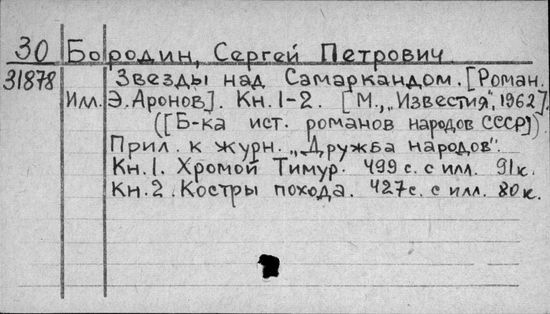 30 Бородин, Сергей Петрович
31878 Звезды над Самаркандом. [Роман.
Илл. Э. Аронов]. Кн. 1-2. [М., „Известия", 1962].
([Б-ка ист. романов народов СССР])
Прил. к журн. „Дружба народов".
Кн. 1. Хромой Тимур. 499 с. с илл. 91 к.
Кн. 2. Костры похода. 427 с. с илл. 80 к.